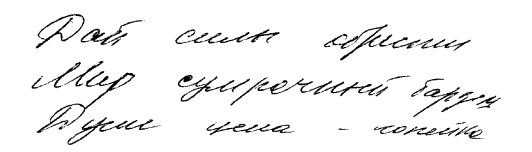 Дай силы обрести
Мир сумрачный бардом
Душе цена - копейка